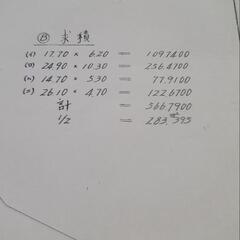 Ⓑ 求積
(イ) 17.70 × 6.20 = 109.7400
(ロ) 24.90 × 10.30 = 256.4700
(ハ) 14.70 × 5.30 = 77.9100
(ニ) 26.10 × 4.70 = 122.6700
計 = 566.7900
1/2 = 283.395